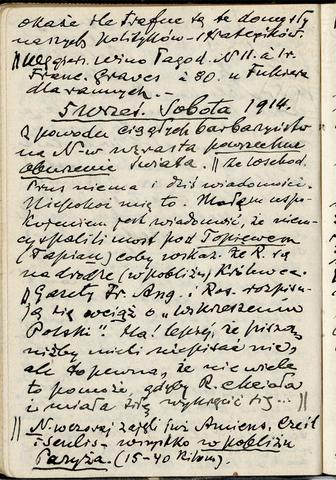 okaże ile trafne są te domysły
naszych polityków-strategików.
|| Węgiers. wino łagod. N 11. à 1 r.
Franc. Graves à 80. u Fuksa
dla rannych.—
5 wrześ. Sobota 1914.
Z powodu ciągłych barbarzyństw
na N-w wzrasta powszechne
oburzenie świata. || Ze wschod.
Prus niema i dziś wiadomości.
Niepokoi mię to. Małym uspo-
kojeniem jest wiadomość, że niem-
cy spalili most pod Tapiewem
(Tapiau) coby wskaz. że R. są
na drodze (w pobliżu) Królewca.
|| Gazety Fr. Ang. i Ros. rozpisu-
ją się wciąż o „wskrzeszeniu
Polski". Ha! lepiej, że piszą,
niżby mieli nie pisać nic,
ale to pewna, że nie wiele
to pomoże, gdyby R. chciała
i miała siłę wykręcić się...||
|| N. wczoraj zajęli już Amiens, Creil
i Senlis- wszystko w pobliżu
Paryża (15-40 kilom.).